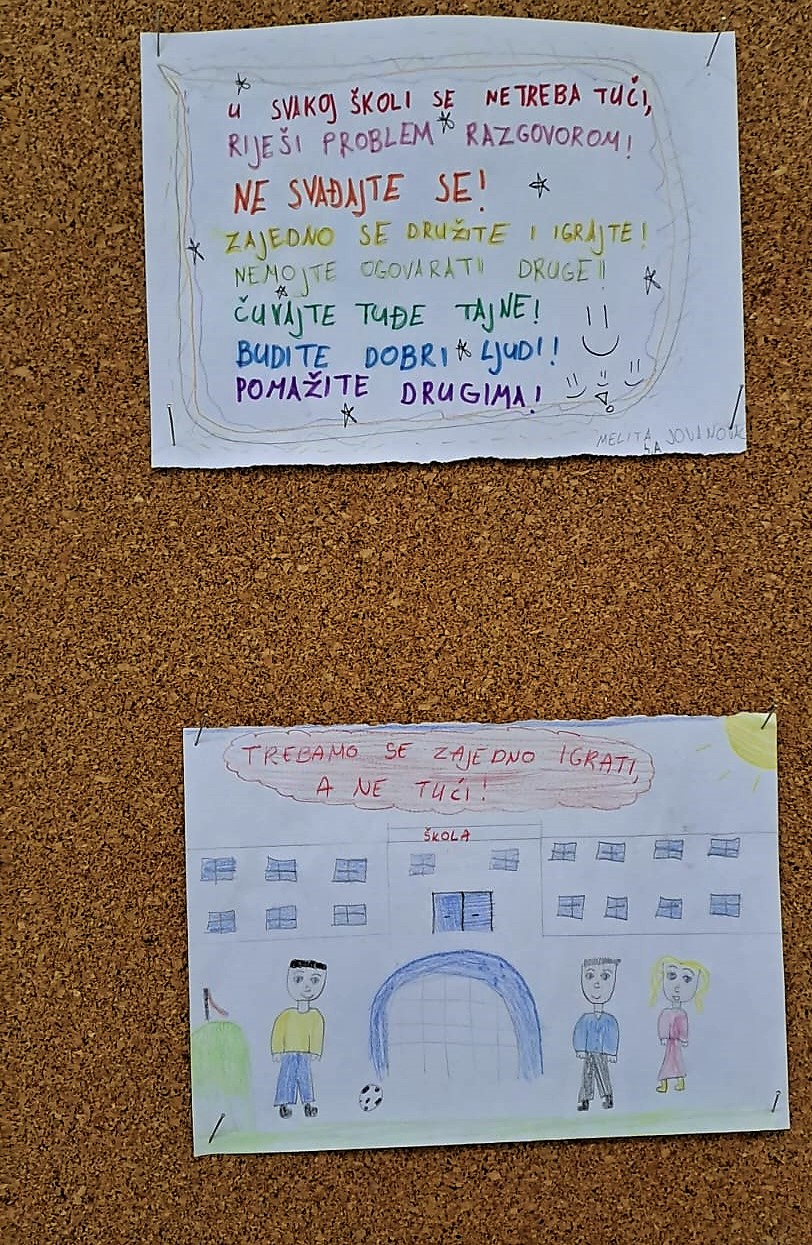 U SVAKOJ ŠKOLI SE NETREBA TUČI,
RIJEŠI PROBLEM RAZGOVOROM!
NE SVAĐAJTE SE!
ZAJEDNO SE DRUŽITE I IGRAJTE!
NEMOJTE OGOVARATI DRUGE!!
ČUVAJTE TUĐE TAJNE!
BUDITE DOBRI LJUDI!
POMAŽITE DRUGIMA!
MELITA
5.A
TREBAMO SE ZAJEDNO IGRATI,
A NE TUĆI!
ŠKOLA